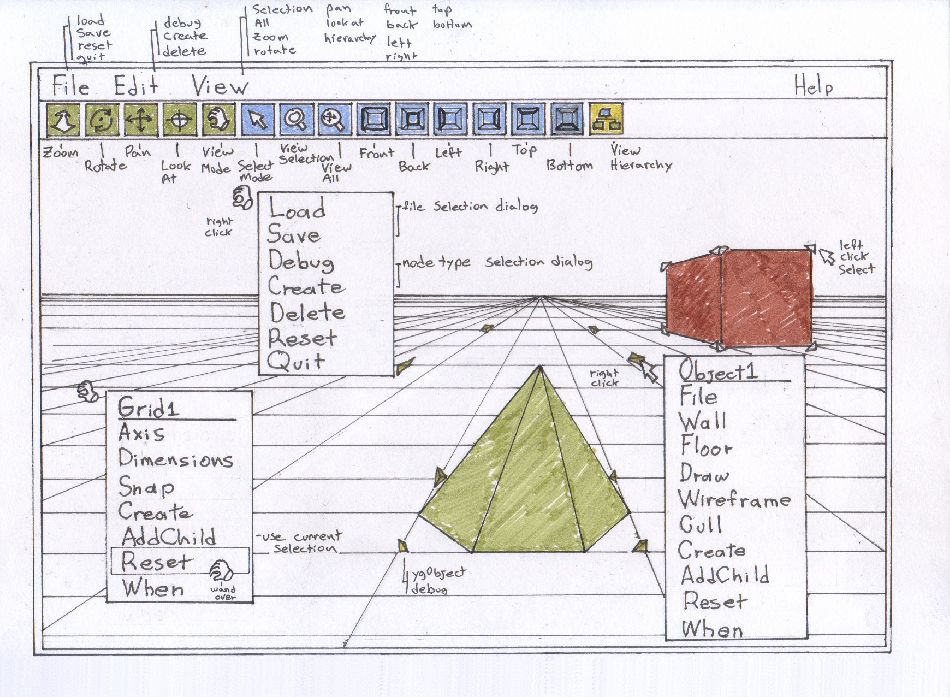 load
Save
reset
quit
debug
create
delete
Selection
All
Zoom
rotate
pan
look at
hierarchy
front
back
left
right
top
bottom
File Edit View Help
Zoom
Rotate
Pan
Look
At
View
Mode
Select
Mode
View
Selection
View
All
Front
Back
Left
Right
Top
Bottom
View
Hierarchy
right
click
Load
Save
Debug
Create
Delete
Reset
Quit
file Selection dialog
node type Selection dialog
left
click
Select
right
click
Grid1
Axis
Dimensions
Snap
Create
AddChild
Reset
When
use current
Selection
wand
over
ygObject
debug
Object1
File
Wall
Floor
Draw
Wireframe
Cull
Create
AddChild
Reset
When